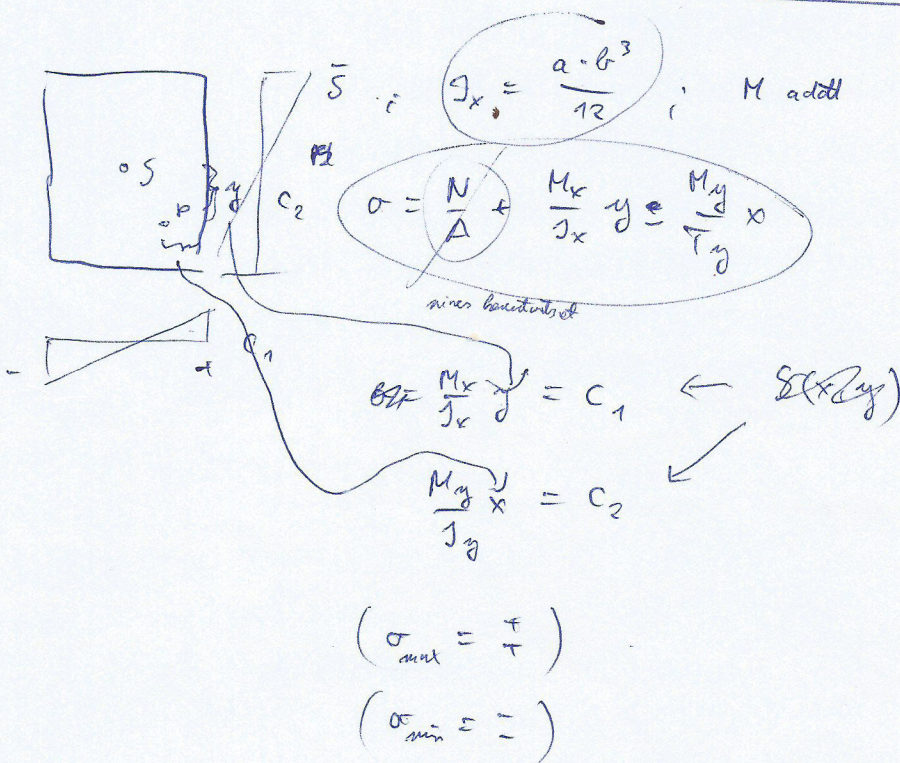 S̄ ; I_x = a · b³ / 12 ; M adott
° S
P } y C₂ σ = N/A + M_x/I_x y ± M_y/I_y x
nincs
- + C₁
M_x/I_x y = C₁ ←
M_y/I_y x = C₂
(σ_max = + +)
(σ_min = - -)